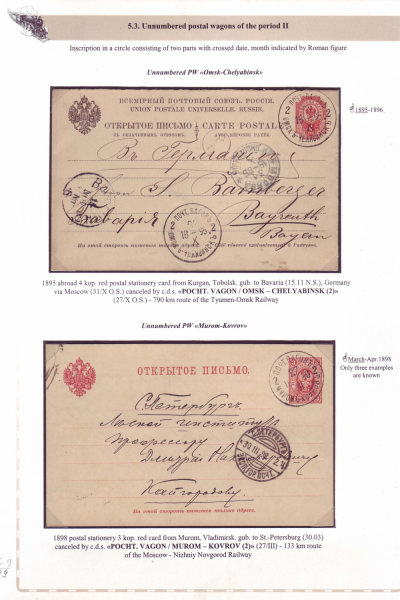 5.3. Unnumbered postal wagons of the period II
Inscription in a circle consisting of two parts with crossed date, month indicated by Roman figure
Unnumbered PW «Omsk-Chelyabinsk»
1895-1896
ВСЕМІРНЫЙ ПОЧТОВЫЙ СОЮЗЪ. РОССІЯ.
UNION POSTALE UNIVERSELLE. RUSSIE.
ОТКРЫТОЕ ПИСЬМО CARTE POSTALE
Въ Германію
S. Bamberger
Бавария Bayreuth
Bayern
На этой сторонѣ
1895 abroad 4 kop. red postal stationery card from Kurgan, Tobolsk. gub. to Bavaria (15.11 N.S.), Germany
via Moscow (31/X O.S.) canceled by c.d.s. «POCHT. VAGON / OMSK – CHELYABINSK (2)»
(27/X O.S.) - 790 km route of the Tyumen-Omsk Railway
Unnumbered PW «Murom-Kovrov»
March-Apr.1898
Only three examples
are known
ОТКРЫТОЕ ПИСЬМО.
С.Петербургъ
Лѣсной институтъ
профессору
Дмитрію Никифоровичу
Кайгородову
На этой сторонѣ кромѣ адреса
1898 postal stationery 3 kop. red card from Murom, Vladimirsk. gub. to St.-Petersburg (30.03)
canceled by c.d.s. «POCHT. VAGON / MUROM – KOVROV (2)» (27/III) - 133 km route
of the Moscow - Nizhniy Novgorod Railway